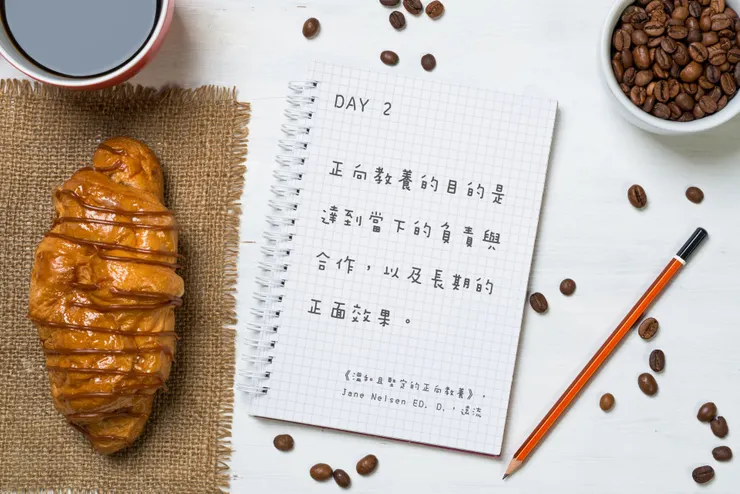 DAY 2
正向教養的目的是
達到當下的負責與
合作，以及長期的
正面效果。
《溫和且堅定的正向教養》，
Jane Nelsen ED. D.，遠流